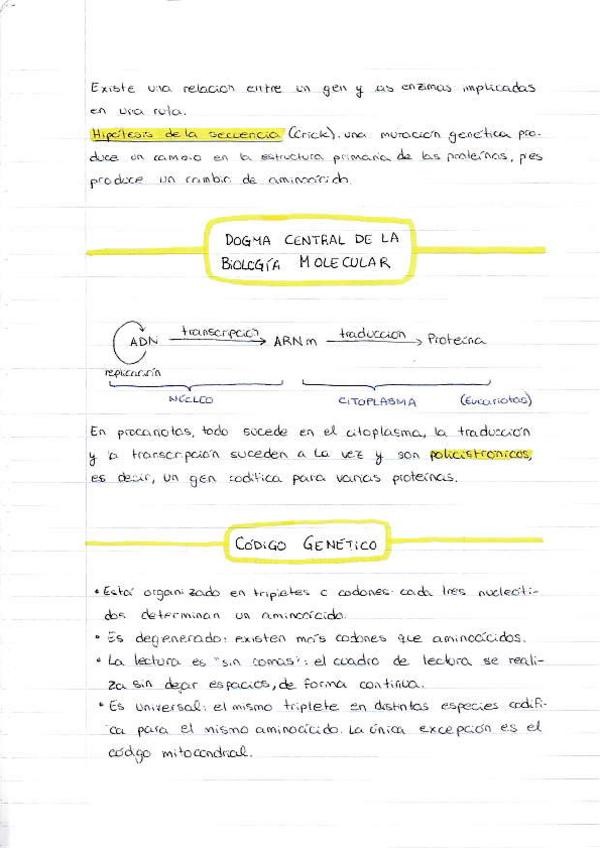 Existe una relación entre un gen y las enzimas implicadas
en una ruta.
Hipótesis de la secuencia (Crick). una mutación genética pro-
duce un cambio en la estructura primaria de las proteínas, pues
produce un cambio de aminoácido.
DOGMA CENTRAL DE LA
BIOLOGÍA MOLECULAR
ADN transcripción ARNm traducción Proteína
replicación
NÚCLEO CITOPLASMA (Eucariotas)
En procariotas, todo sucede en el citoplasma, la traducción
y la transcripción suceden a la vez y son policistronicos,
es decir, un gen codifica para varias proteínas.
CÓDIGO GENÉTICO
• Está organizado en tripletes o codones: cada tres nucleóti-
dos determinan un aminoácido.
• Es degenerado: existen más codones que aminoácidos.
• La lectura es "sin comas": el cuadro de lectura se reali-
za sin dejar espacios, de forma continua.
• Es universal: el mismo triplete en distintas especies codifi-
ca para el mismo aminoácido. La única excepción es el
código mitocondrial.